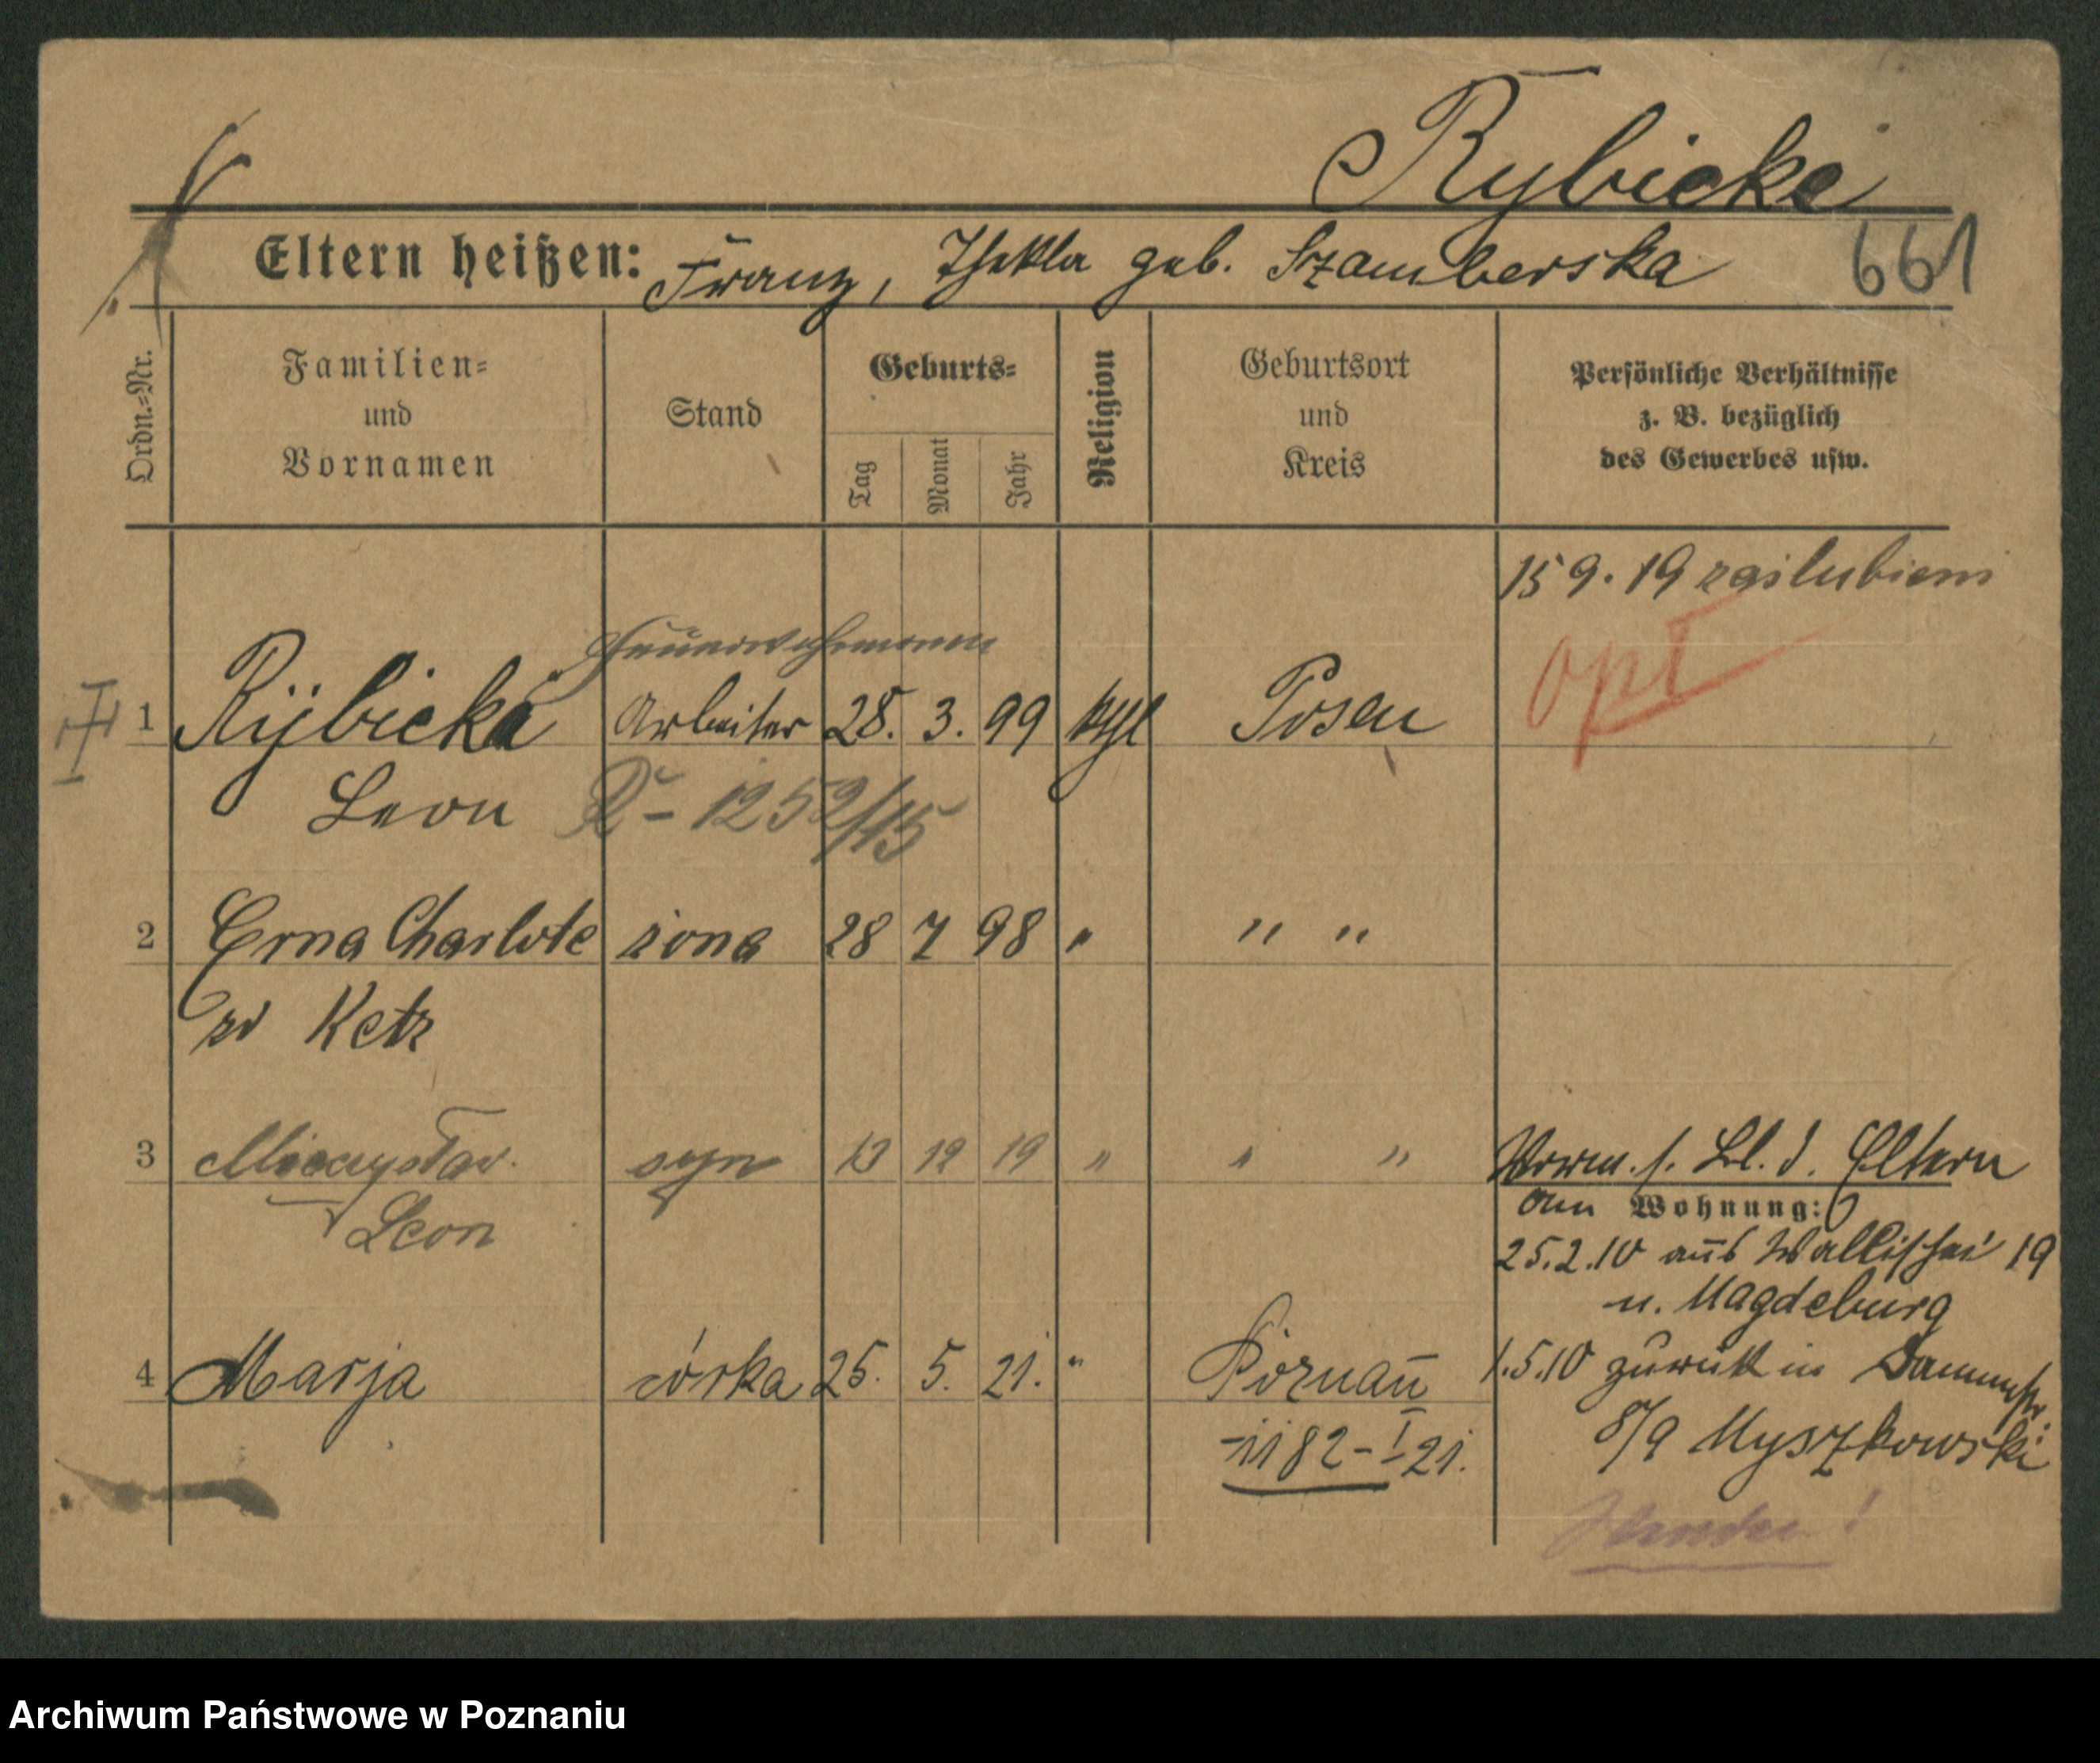 Rybicki
Eltern heißen: Franz, Thekla geb. Szamberska
661
Ordn.=Nr.
Familien=
und
Vornamen
Stand
Geburts=
Tag
Monat
Jahr
Religion
Geburtsort
und
Kreis
Persönliche Verhältnisse
z. B. bezüglich
des Gewerbes usw.
15 9. 19 zaślubieni
opt
Feuerwehrmann
1 Rybicki Arbeiter 28. 3. 99 kthl Posen
Leon R - 1252/15
2 Erna Charlote żona 28 7 98 " " "
zd Ketz
3 Mieczysław syn 13 12 19 " " "
Leon
Vorm. s. Bl. d. Eltern
am Wohnung:
25.2.10 aus Wallischei 19
n. Magdeburg
4 Marja córka 25. 5. 21. " Poznań
1182-I 21.
1.5.10 zurück in Dammstr.
8/9 Myszkowski
Archiwum Państwowe w Poznaniu